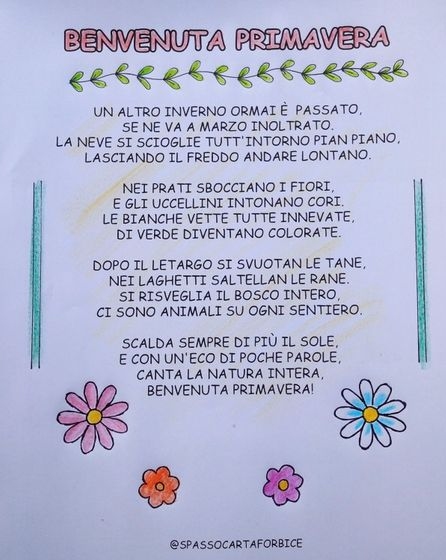 BENVENUTA PRIMAVERA
UN ALTRO INVERNO ORMAI È PASSATO,
SE NE VA A MARZO INOLTRATO.
LA NEVE SI SCIOGLIE TUTT'INTORNO PIAN PIANO,
LASCIANDO IL FREDDO ANDARE LONTANO.
NEI PRATI SBOCCIANO I FIORI,
E GLI UCCELLINI INTONANO CORI.
LE BIANCHE VETTE TUTTE INNEVATE,
DI VERDE DIVENTANO COLORATE.
DOPO IL LETARGO SI SVUOTAN LE TANE,
NEI LAGHETTI SALTELLAN LE RANE.
SI RISVEGLIA IL BOSCO INTERO,
CI SONO ANIMALI SU OGNI SENTIERO.
SCALDA SEMPRE DI PIÙ IL SOLE,
E CON UN'ECO DI POCHE PAROLE,
CANTA LA NATURA INTERA,
BENVENUTA PRIMAVERA!
@SPASSOCARTAFORBICE